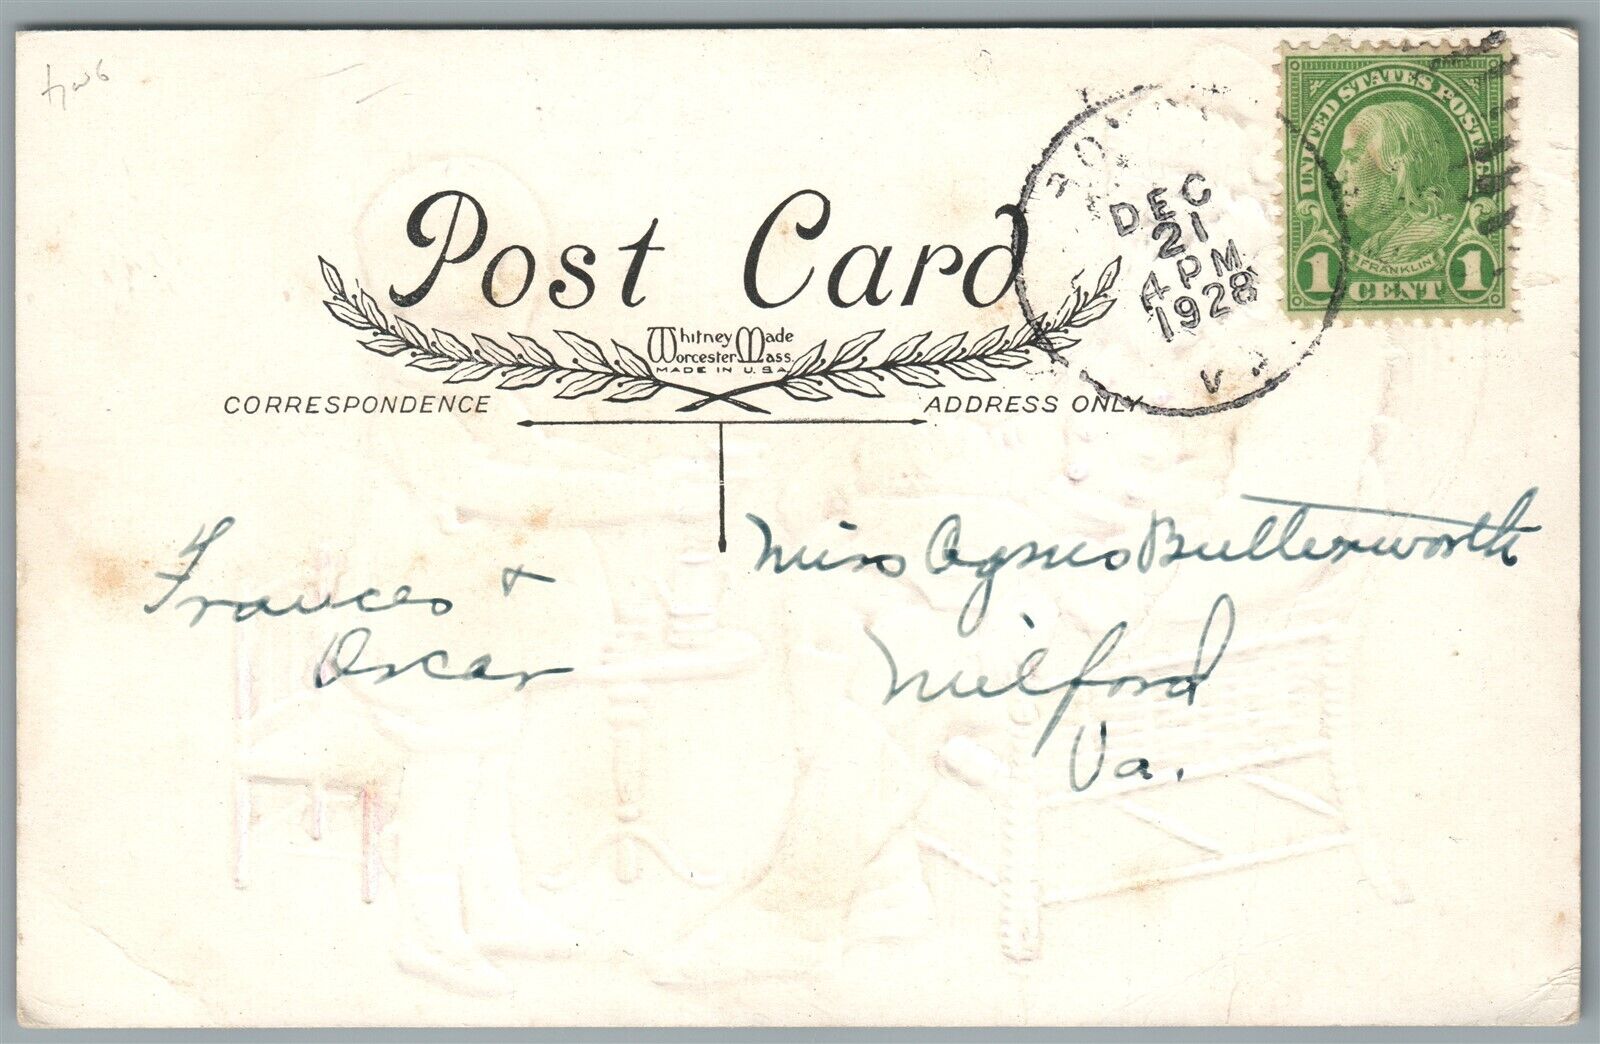 Post Card
Whitney Made
Worcester Mass.
MADE IN U.S.A.
CORRESPONDENCE
ADDRESS ONLY
DEC
21
4 PM
1928
VA
UNITED STATES POST
FRANKLIN
1 CENT 1
Frances +
Oscar
Miss Agnes Butterworth
Milford
Va.